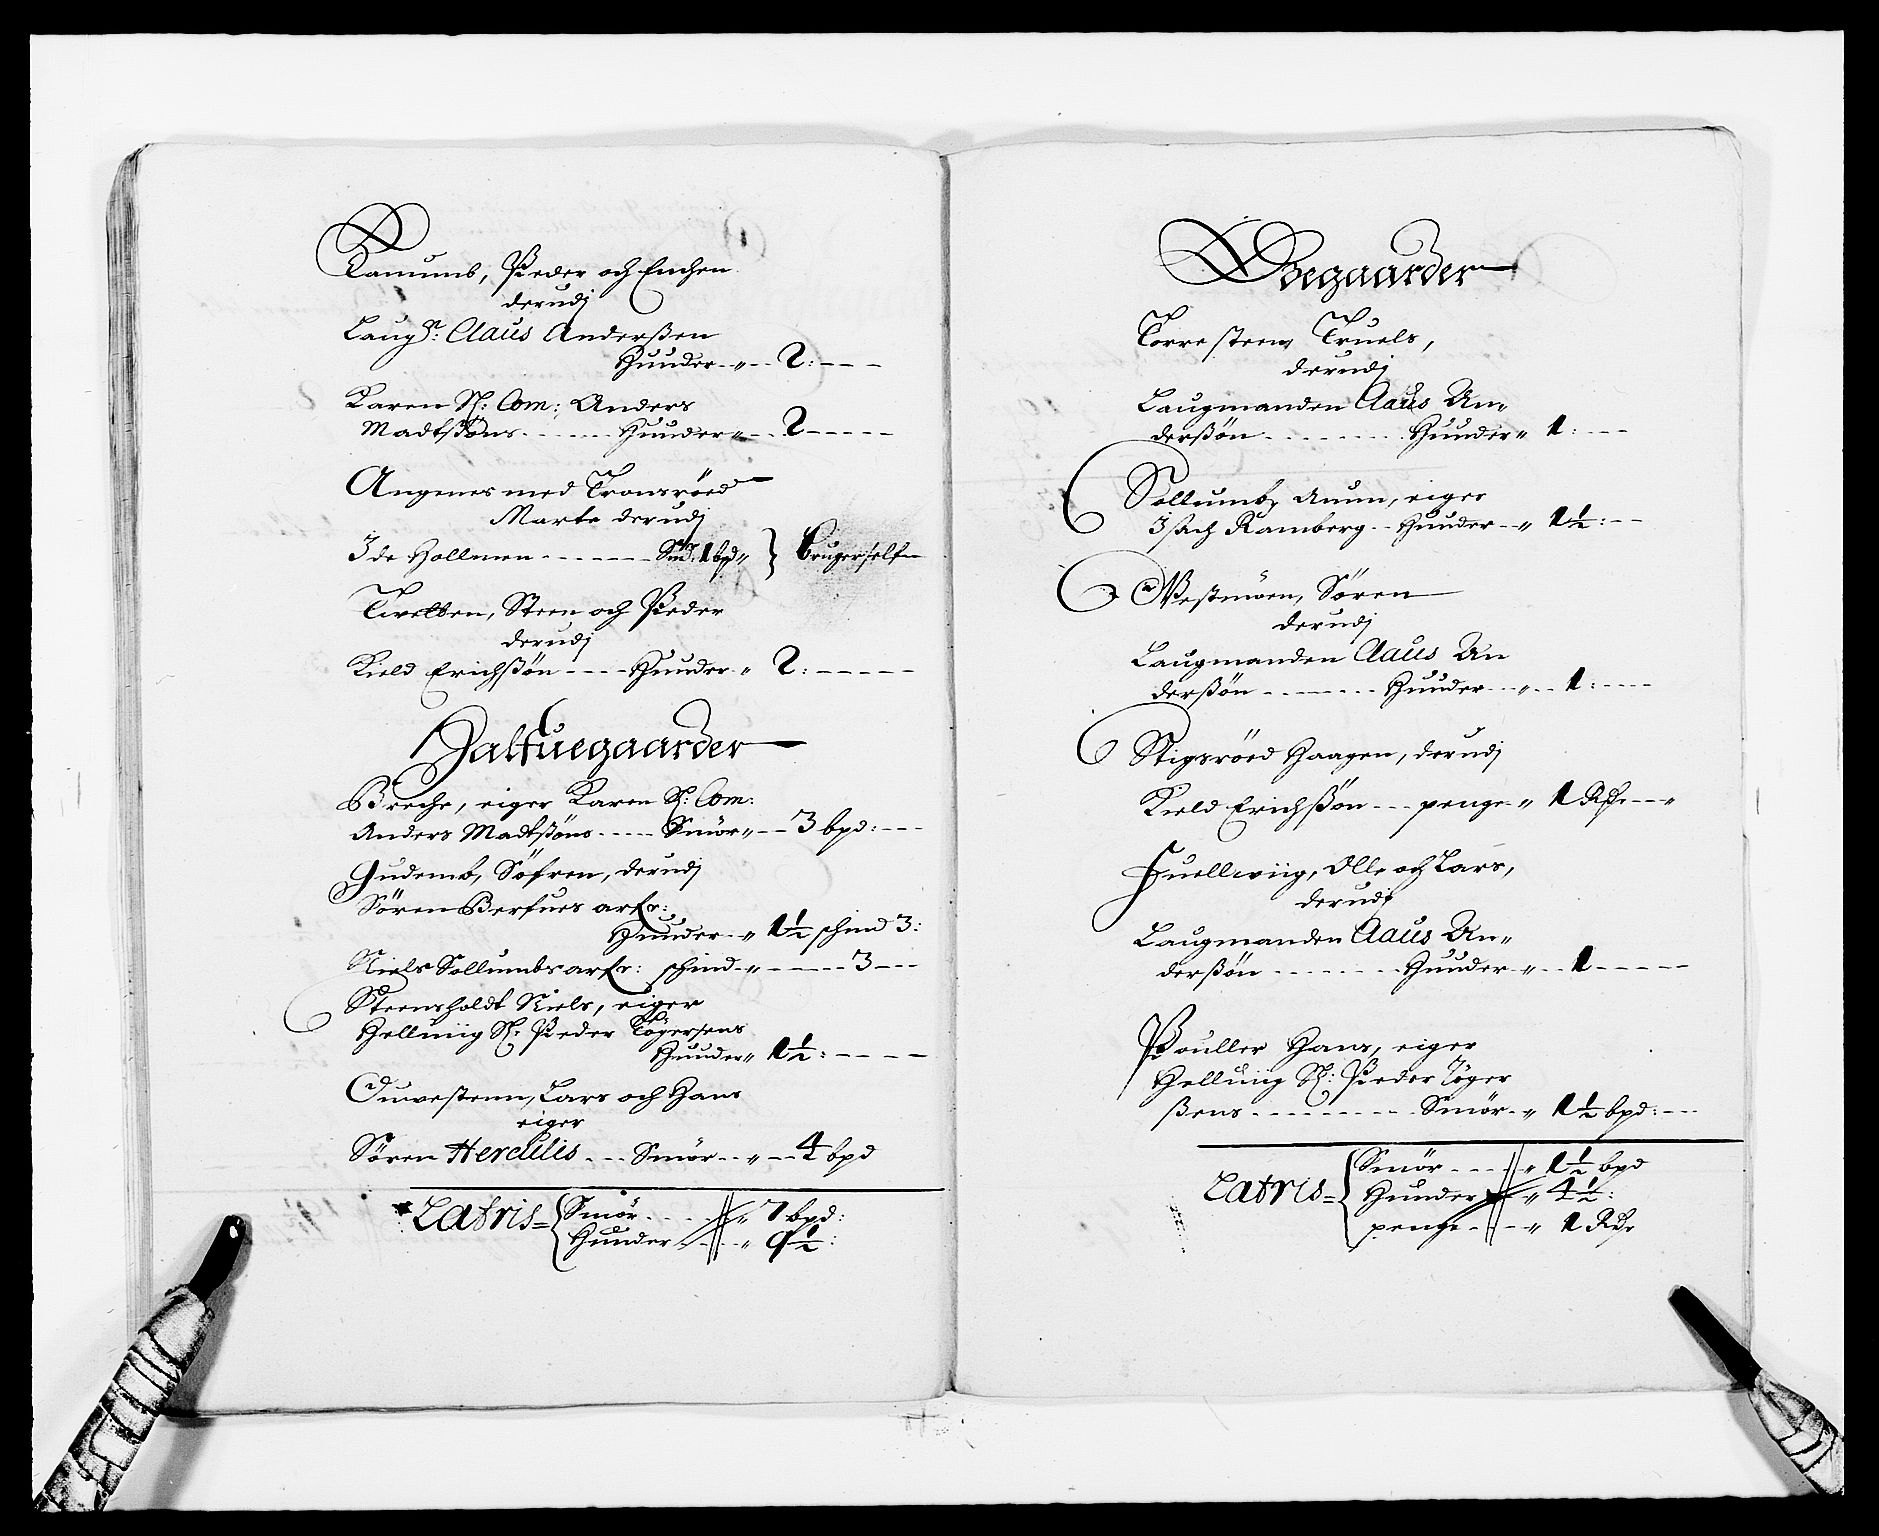 Ramumb, Peder och Enchen
derudj
Laugm: Claus Anderßen
Huuder - „ - 2: - - -
Karen Sl: Com: Anders
Madtsøns - - - - Huuder „ - 2 - - - -
Angenes med Tronsröed
Marte derudj
Ide Hollmen - - - - - - Smör 1 bpd „ } bruger self
Tvetten, Steen och Peder
derudj
Kield Erichßøn - - - - Huuder „ 2: - - - - -
Halfuegaarder
Breche, eiger Karen Sl: Com:
Anders Madtsøns - - - - Smör „ - - 3 bpd: - - -
Gudemb, Söfren, derudj
Sören Berfues arfr:
Huuder - „ 1½ schind 3:
Niels Sollumbs arfr: schind - „ - - - - - 3 - - -
Steensholdt Niels, eiger
Helluiig Sl: Peder Tøgersens
Huuder „ 1½: - - - - -
Ouvestenn, Lars och Hans
eiger
Sören Herculis - - - Smör - - „ - - 4 bpd
Latris = Smör - - - - „ 7 bpd:
Huuder - - - „ 9½:
Ødegaarder
Torresteen, Truels,
derudj
Laugmanden Claus An„
derßøn - - - - - - - - Huuder „ 1: - - -
Sollumb, Anun, eiger
Isach Ramberg - - Huuder - - „ 1½: - -
Westmöen, Sören
derudj
Laugmanden Claus An
derßøn - - - - - - - - Huuder - - „ - - 1: - - - -
Stigsröed Haagen, derudj
Kield Erichßøn - - - penge - „ 1 Rdr - - „
Fuellwiig, Olle och Lars,
derudj
Laugmanden Claus An„
derßøn - - - - - - - - Huuder - „ - - 1 - - - - -
Pouller Hans, eiger
Helluiig Sl: Peder Töger
ßens - - - - - - - - - Smör - „ 1½ bpd: - - -
Latris = Smör - - - - „ 1½ bpd
Huuder „ 4½:
penge - - - - „ 1 Rdr